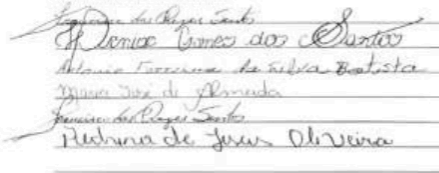 Francisco das Chagas Santos
Denise Gomes dos Santos
Antonio Ferreira da Silva Batista
Maria José de Almeida
Francisco das Chagas Santos
de Jesus Oliveira